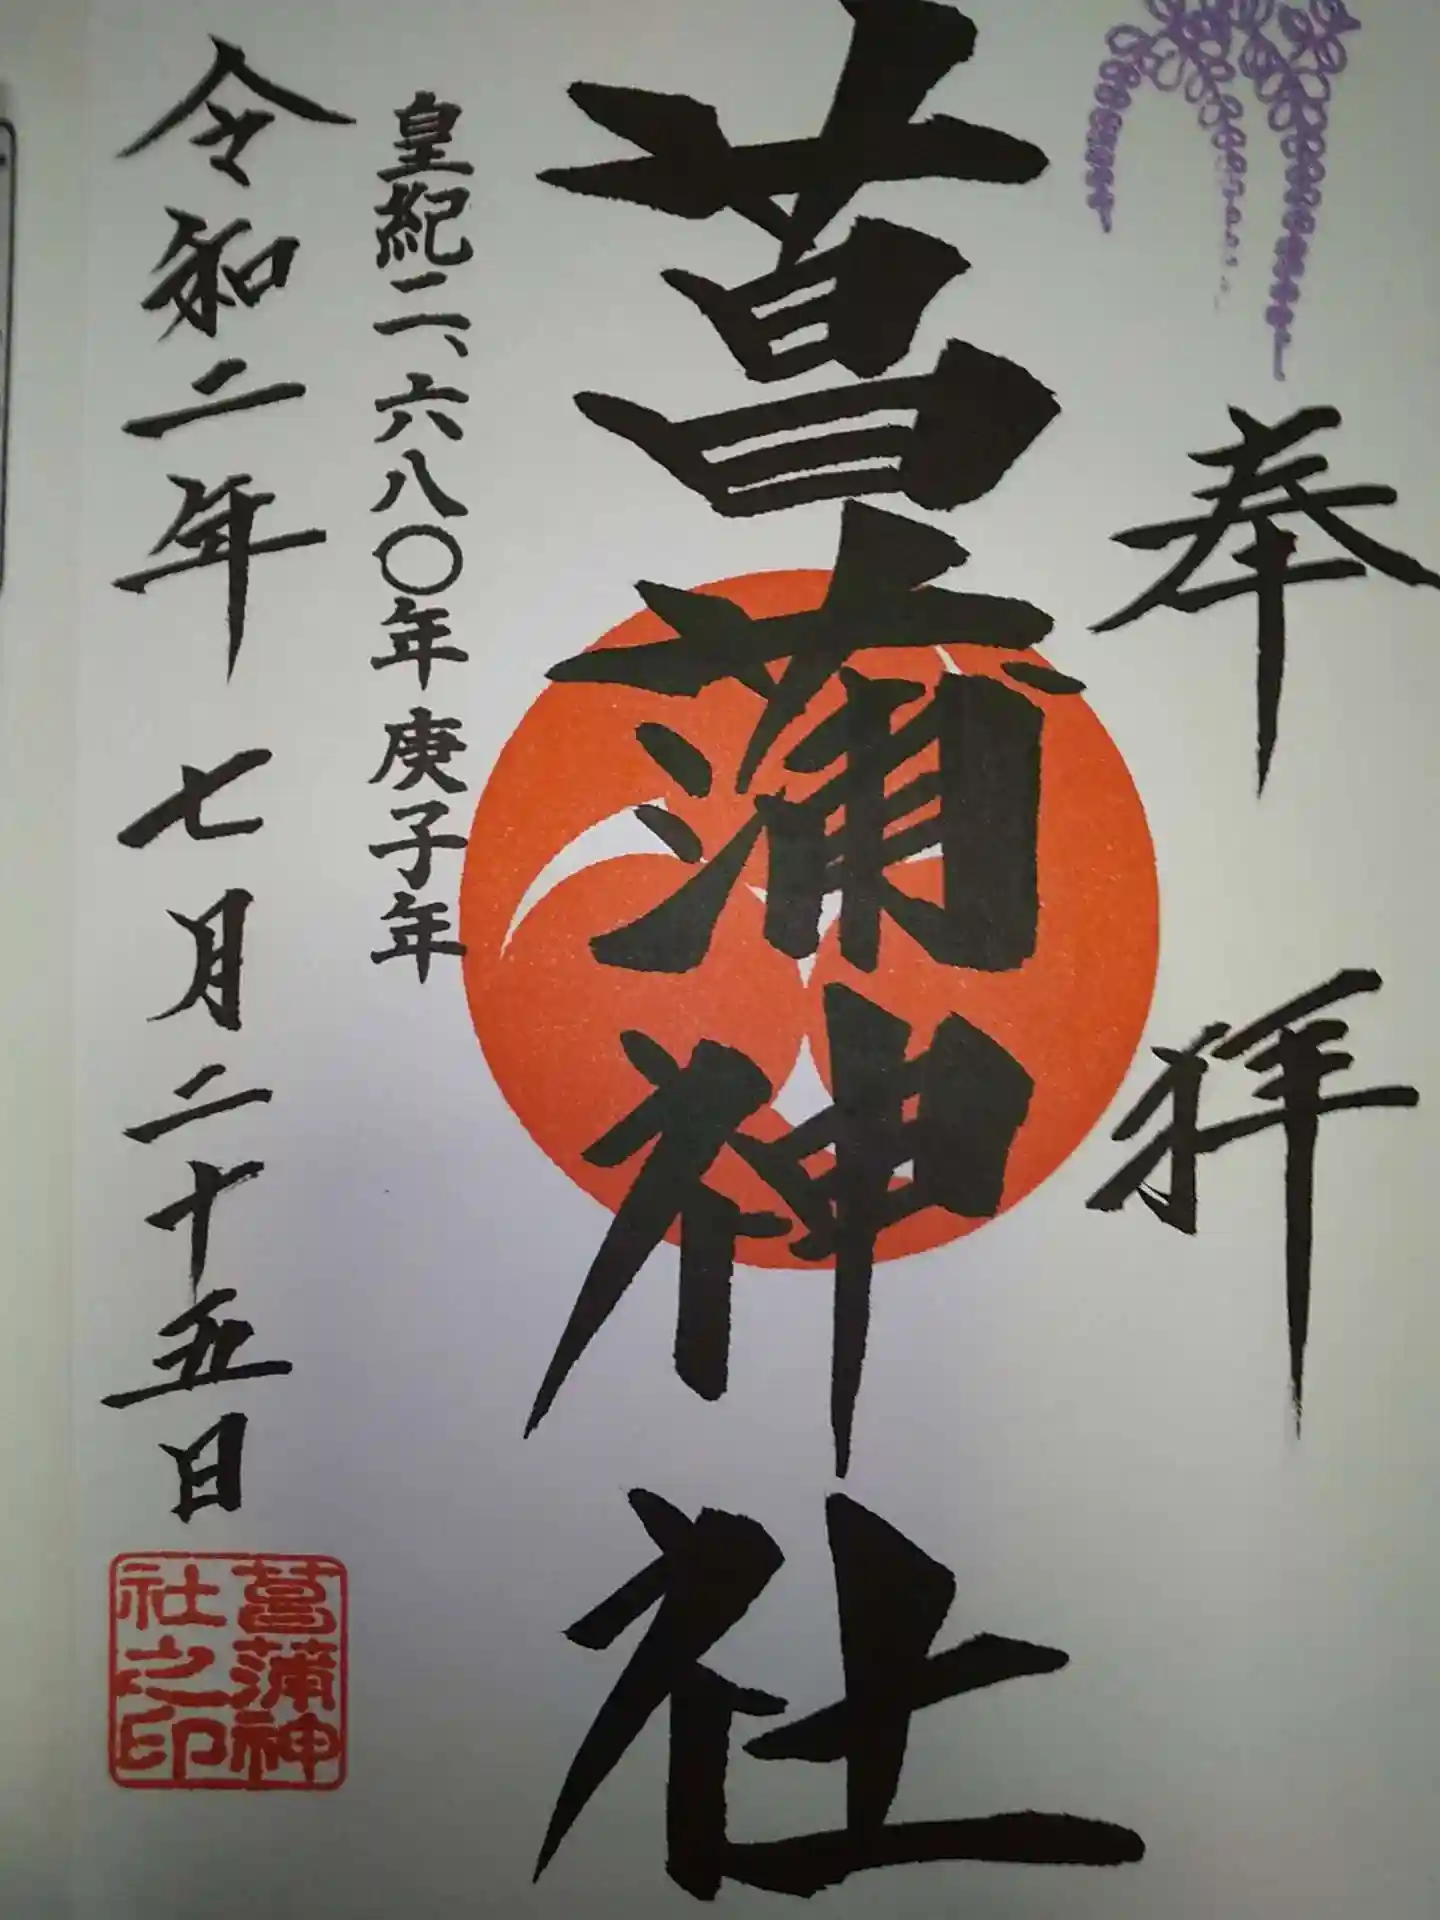 奉拝
菖蒲神社
皇紀二、六八〇年庚子年
令和二年 七月二十五日
菖蒲神
社之印